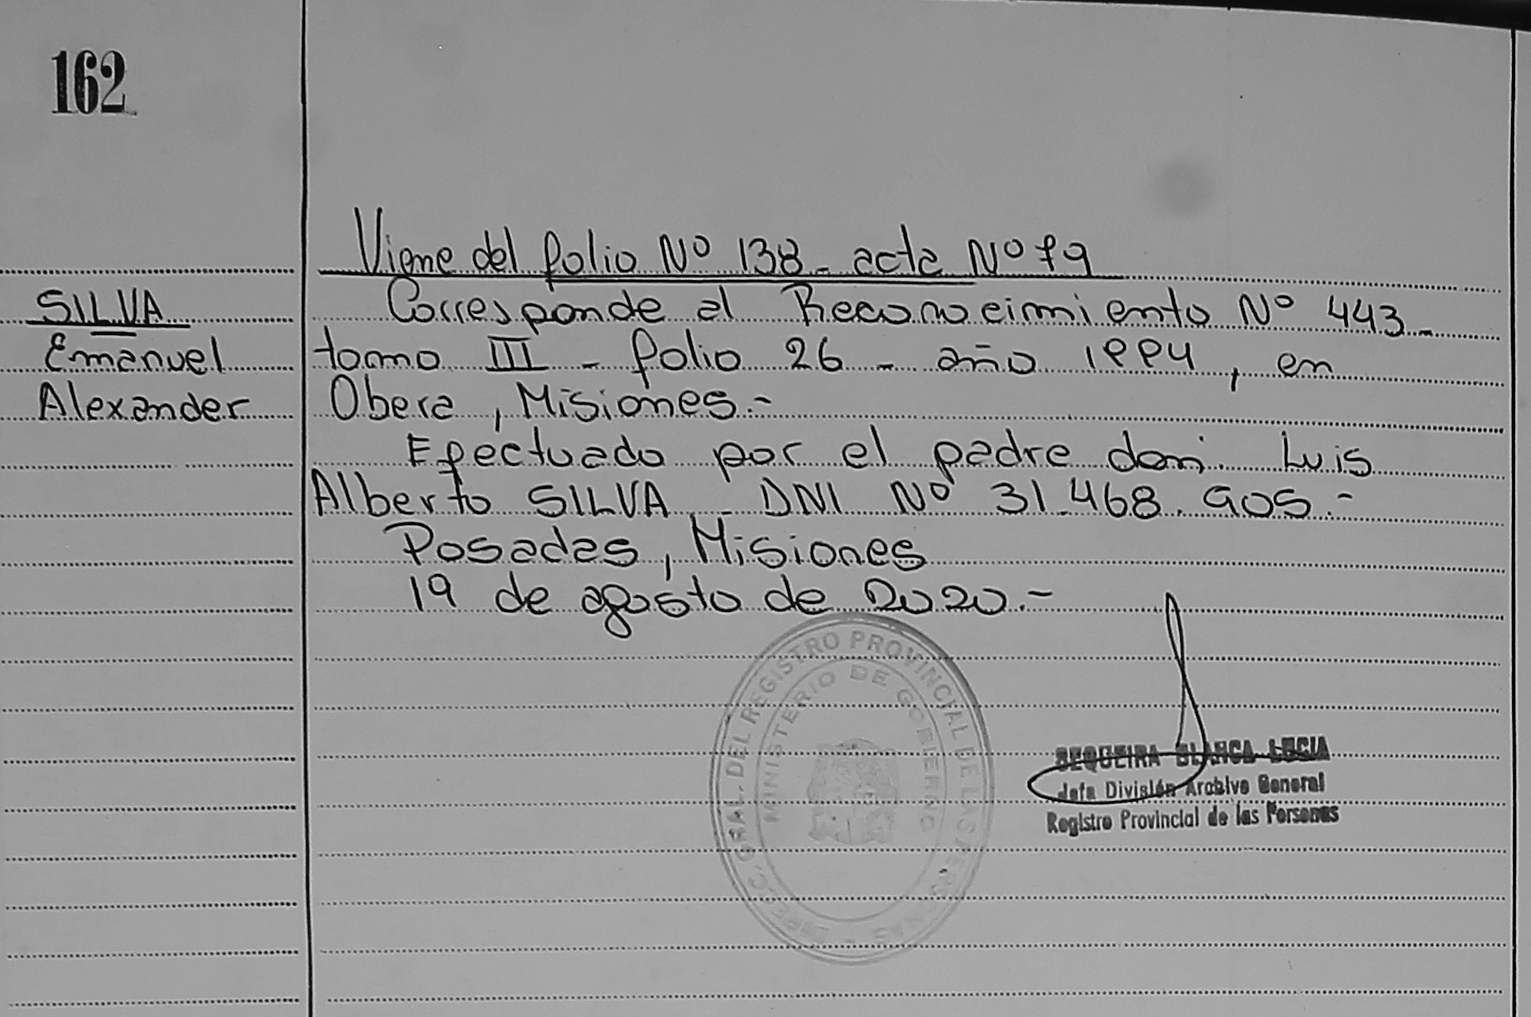 162
Viene del folio Nº 138 - acta Nº 79
SILVA
Emanuel
Alexander
Corresponde al Reconocimiento Nº 443-
tomo III - folio 26 - año 1994, en
Obera, Misiones.-
Efectuado por el padre don: Luis
Alberto SILVA - DNI Nº 31.468.905.-
Posadas, Misiones
19 de agosto de 2020.-
DIRECC. GRAL. DEL REGISTRO PROVINCIAL DE LAS PERSONAS -
MINISTERIO DE GOBIERNO
SEQUEIRA BLANCA LUCIA
Jefa División Archivo General
Registro Provincial de las Personas